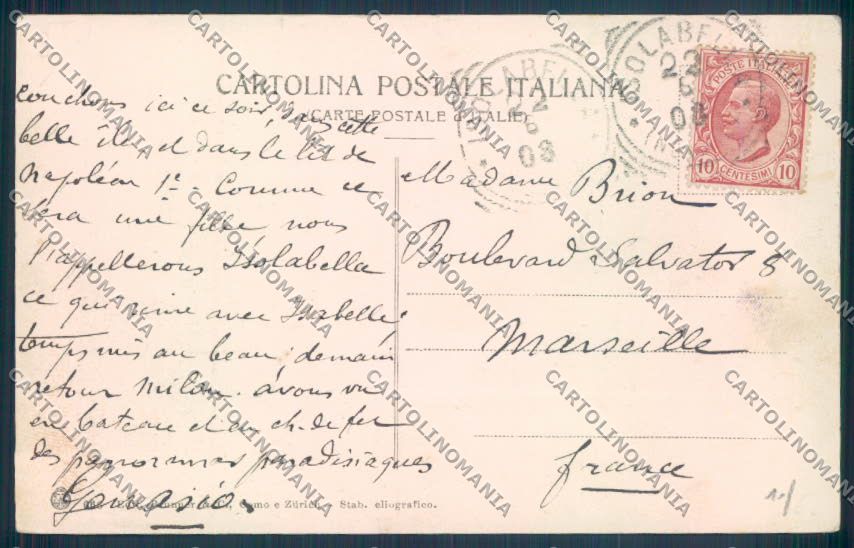 CARTOLINA POSTALE ITALIANA
(CARTE POSTALE d'ITALIE)
ISOLABELLA
22
6
08
POSTE ITALIANE
10 CENTESIMI 10
couchons ici ce soir, dans cette
belle île, et dans le lit de
Napoléon 1er. Comme ce
sera une fille nous
l'appellerons Isolabella
ce qui rime avec Isabelle.
temps mis au beau, demain
retour Milan. avons vu
en bateau et en ch. de fer
des panoramas paradisiaques
Madame Brion
Boulevard Salvator 8
Marseille
france
Como e Zürich. Stab. eliografico.
CARTOLINOMANIA